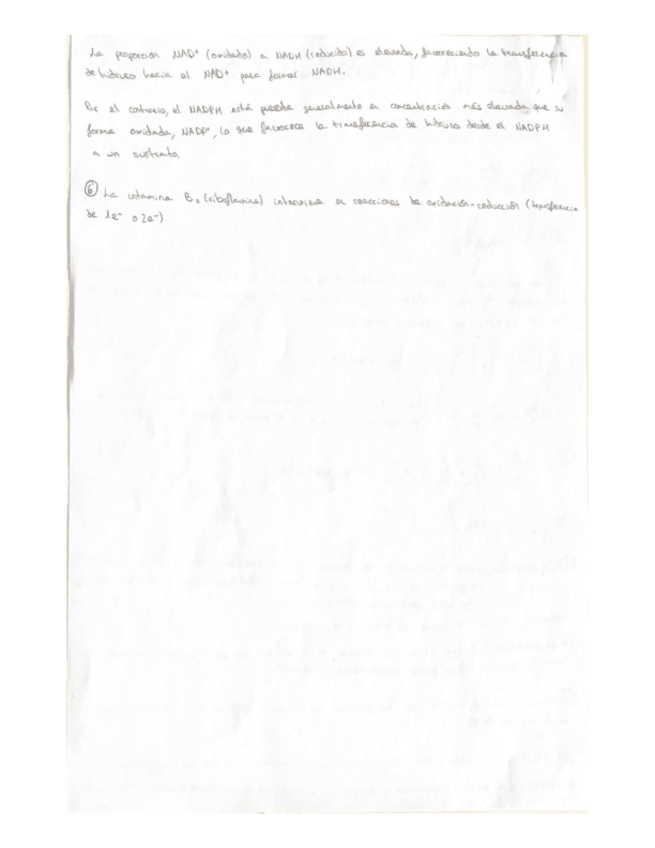 La proporción NAD⁺ (oxidado) a NADH (reducido) es elevada, favoreciendo la transferencia
de hidruro hacia el NAD⁺ para formar NADH.
Por el contrario, el NADPH está presente generalmente en concentración más elevada que su
forma oxidada, NADP⁺, lo que favorece la transferencia de hidruro desde el NADPH
a un sustrato.
⑥ La vitamina B₂ (riboflavina) interviene en reacciones de oxidación-reducción (transferencia
de 1e⁻ o 2e⁻)